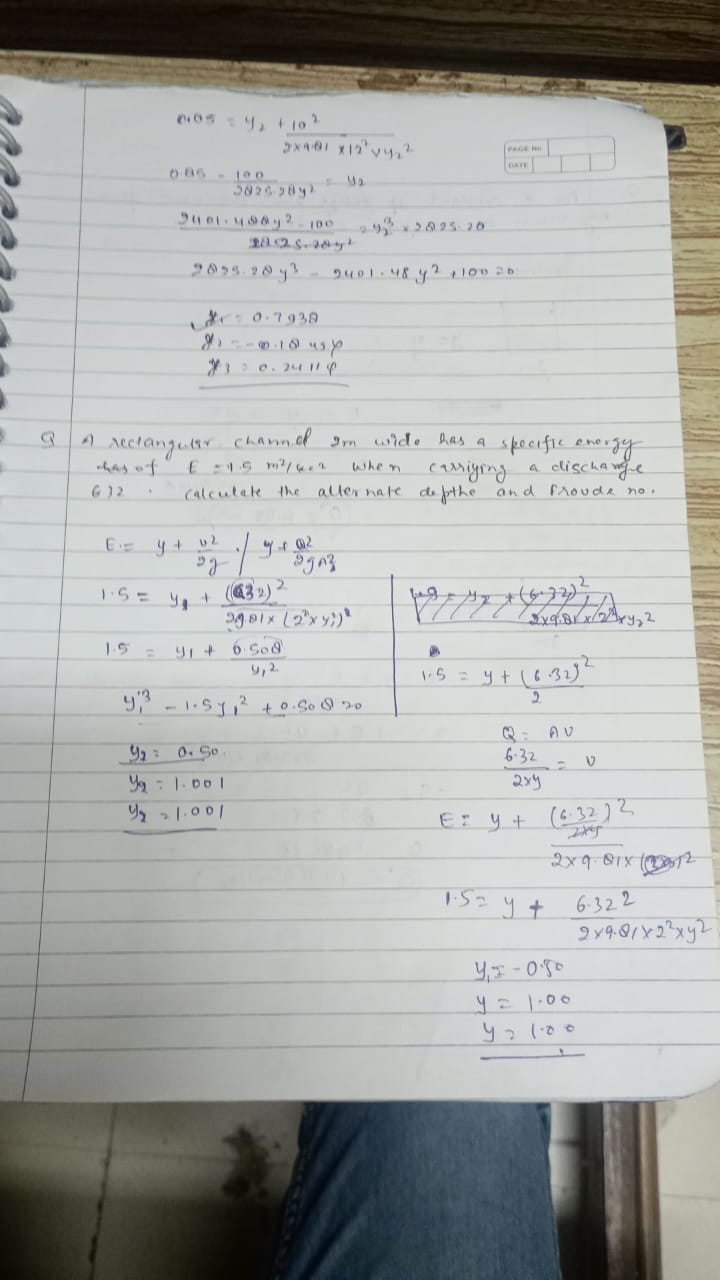 0.85 = y₂ + 10²
2×9.81 × 12² × y₂²
PAGE No
DATE
0.85 - 100 = y₂
2825.28y²
2401.488y² - 100 = y₂³ × 2825.28
2825.28y²
2825.28y³ - 2401.48y² + 100 = 0
y₁ = 0.7938
y₃ = 0.2411
Q A rectangular channel 2m wide has a specific energy
has of E = 1.5 when carriying a discharge
6.32 . calculate the alternate depthe and Froude no.
E = y + v² / y + Q²
2g 2gA²
1.5 = y₁ + (6.32)²
2×9.81 × (2² × y₁²)
1.5 = y₁ + 0.508
y₁²
y₁³ - 1.5y₁² + 0.508 = 0
y₂ = 0.50
y₂ = 1.001
y₂ = 1.001
2×9.81 × 2² × y₂²
1.5 = y + (6.32)²
2
Q = AV
6.32 = v
2×y
E = y + (6.32)²
2×y
2×9.81×
1.5 = y + 6.32²
2×9.81×2²×y²
y₁ = -0.50
y = 1.00
y = 1.00